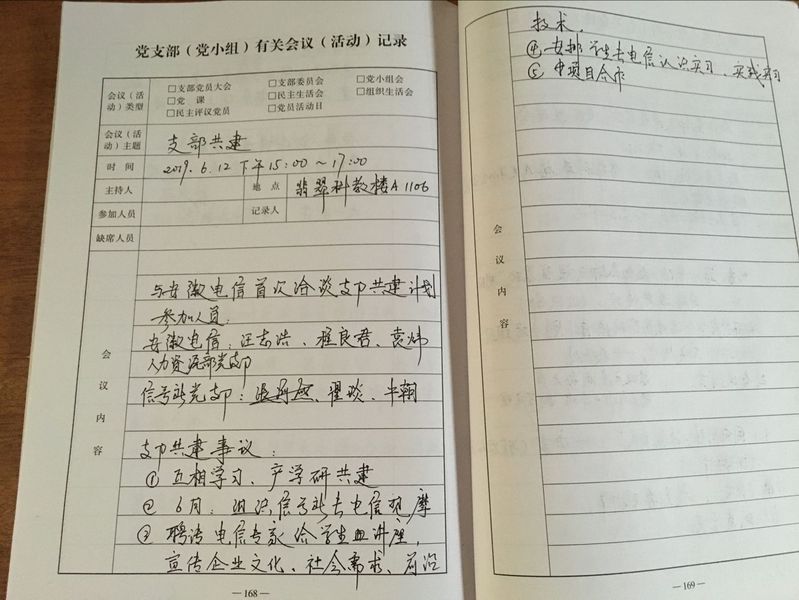 党支部（党小组）有关会议（活动）记录
会议（活动）类型
□支部党员大会 □支部委员会 □党小组会
□党 课 □民主生活会 □组织生活会
□民主评议党员 □党员活动日
会议（活动）主题 支部共建
时 间 2019.6.12 下午15:00～17:00
主持人 地 点 翡翠科教楼A1106
参加人员 记录人
缺席人员
会议内容
与安徽电信首次洽谈支部共建计划
参加人员：
安徽电信：汪志浩、程良君、袁炜
人力资源部党支部
信号所党支部：翟琰、
支部共建事议：
① 互相学习、产学研共建
② 6月：组织信号所去电信观摩
③ 聘请电信专家给学生上讲座，
宣传企业文化、社会需求、前沿
—168—
技术.
④ 安排学生去电信认识实习、实践实习
⑤ 申项目合作
会议内容
—169—